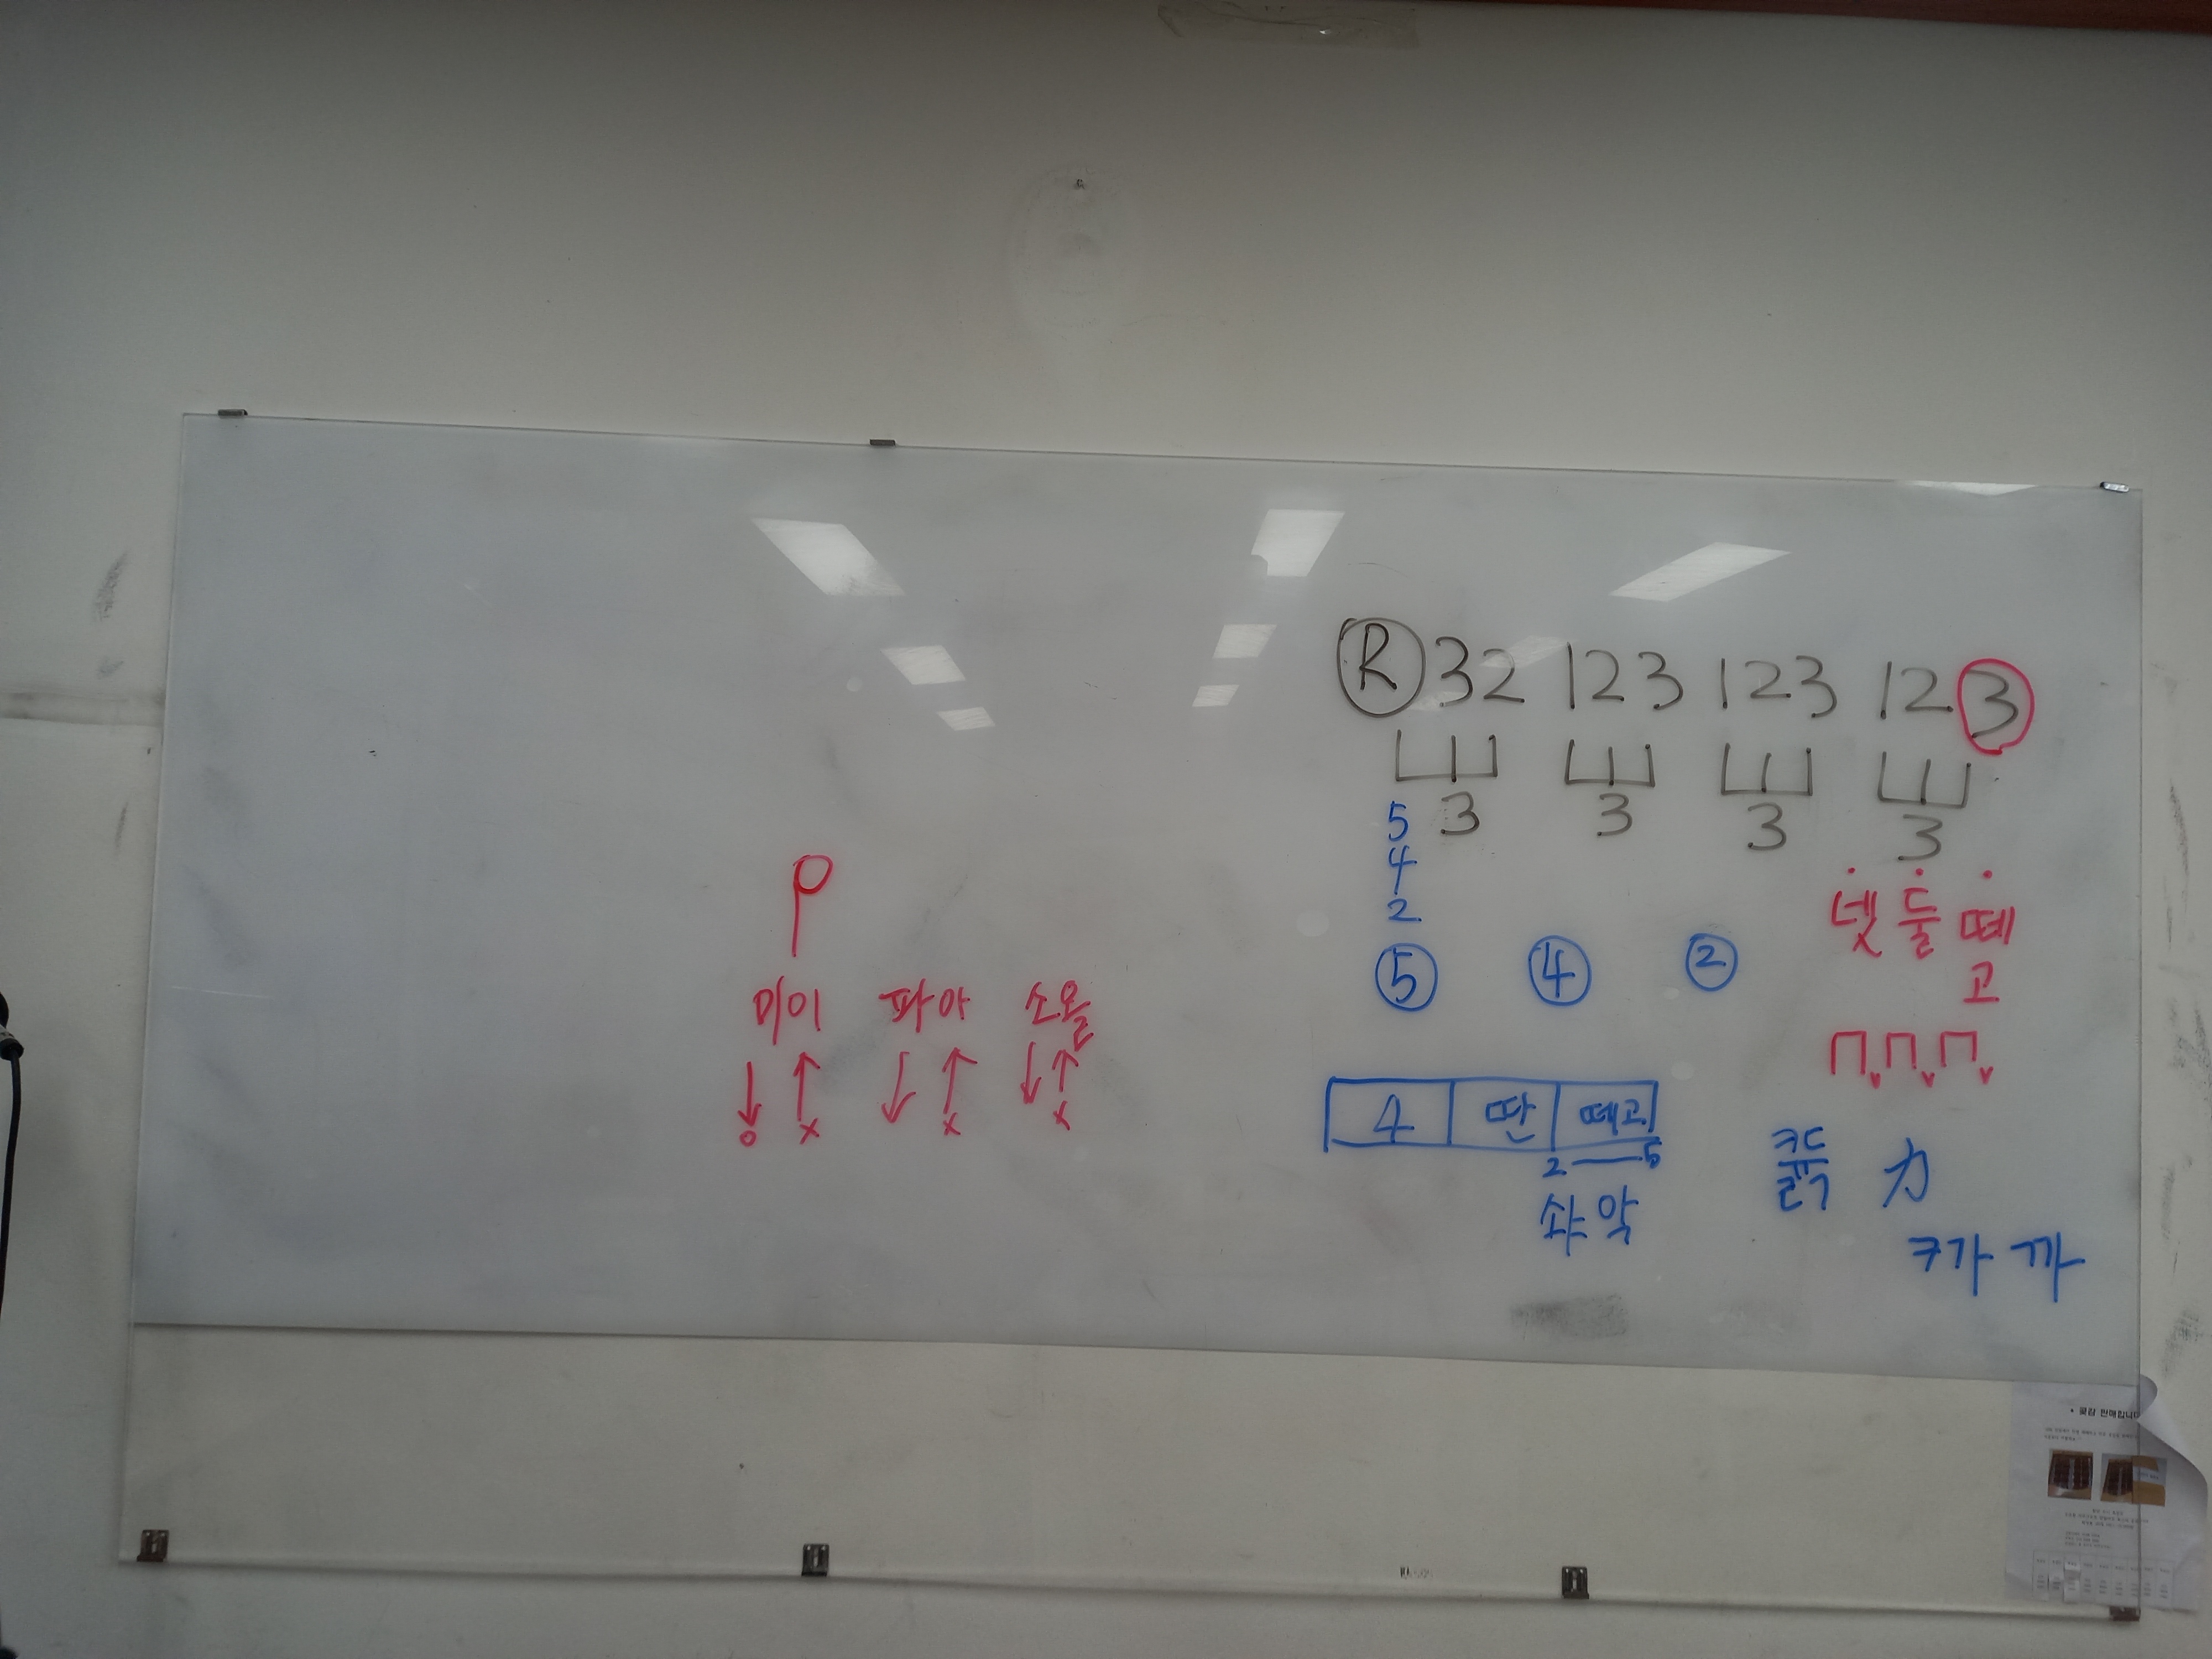 R 32 123 123 123
3 3 3 3
5
4
2
넷 둘 떼
고
⑤ ④ ②
미이 파아 소올
4 딴 떼고
2 — 5
솨 악
카
ㅋ가 까
곶감 판매합니다